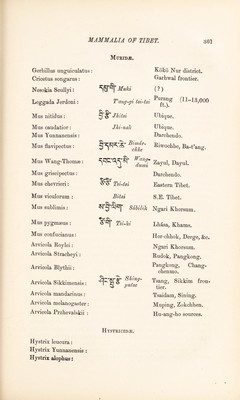 MAMMALIA OF TIBET. 361
MURIDÆ.
Gerbillus unguiculatus : Kökö Nur district.
Cricetus songarus : Garhwal frontier.
Nesokia Scullyi : Muhi (?)
Leggada Jerdoni : T'ang-gi tsi-tsi Purang (11–13,000 ft.).
Mus nitidus : Jhitsi Ubique.
Mus caudatior : Jhi-nak Ubique.
Mus Yunnanensis : Darchendo.
Mus flavipectus : Biwochhe, Ba-t'ang.
Mus Wang-Thomæ : Zayul, Dayul.
Mus griseipectus : Darchendo.
Mus chevrieri : ཙི་ཙི Tsi-tsi Eastern Tibet.
Mus viculorum : Bitsi S.E. Tibet.
Mus sublimis : Sikilik Ngari Khorsum.
Mus pygmæus : Tsi-ki Lhása, Khams.
Mus confucianus : Hor-chhok, Derge, &c.
Arvicola Roylei : Ngari Khorsum.
Arvicola Stracheyi : Rudok, Pangkong.
Arvicola Blythii : Pangkong, Chang-chenmo.
Arvicola Sikkimensis : Tsang, Sikkim frontier.
Arvicola mandarinus : Tsaidam, Sining.
Arvicola melanogaster : Muping, Zokchhen.
Arvicola Prehvalskii : Hu-ang-ho sources.
HYSTRICIDÆ.
Hystrix leucura :
Hystrix Yunnanensis :
Hystrix alophus :